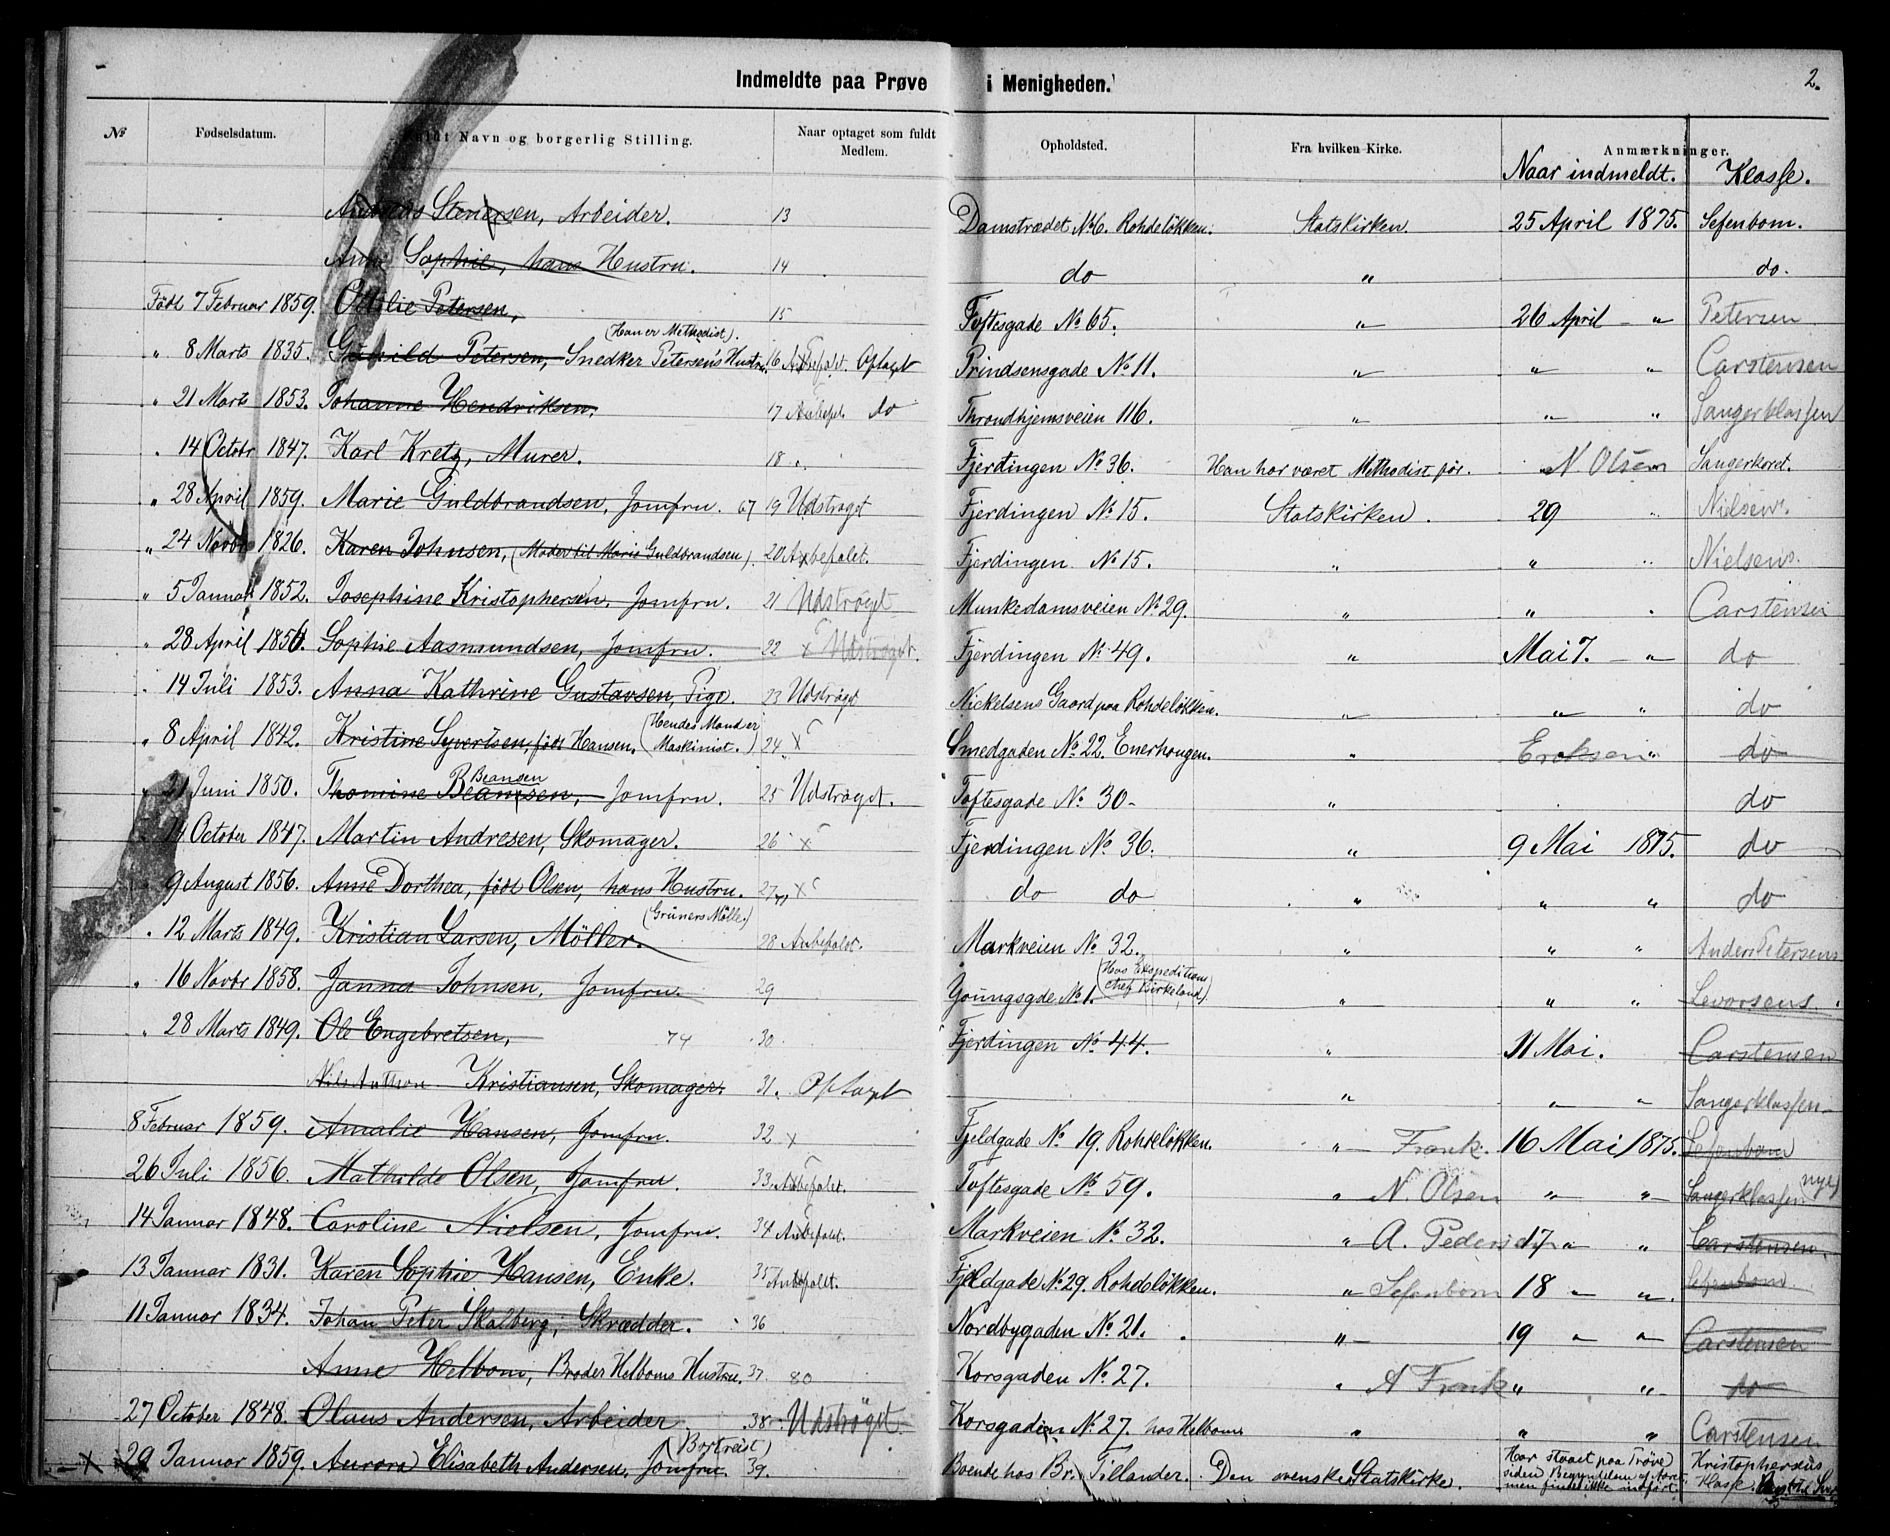 Indmeldte paa Prøve i Menigheden. 2.
№ Fødselsdatum. Navn og borgerlig Stilling. Naar optaget som fuldt Medlem. Opholdsted. Fra hvilken Kirke. Anmærkninger.
Naar indmeldt. Klasse.
Andreas Stenersen, Arbeider. 13 Damstrædet No 6. Rohdeløkken. Statskirken 25 April 1875. Sefenbom.
Anne Sophie, hans Hustru. 14 do " do.
Født 7 Februar 1859. Ottilie Petersen, 15 Toftesgade No 65. " 26 April " Petersen
(Han er Methodist).
" 8 Marts 1835. Gunild Petersen, Snedker Petersens Hustru. 16 Anbefalet. Optaget Prindsensgade No 11. " " " Carstensen
" 21 Marts 1853. Johanne Hendriksen. 17 Anbefal. do Throndhjemsveien 116. " " " Sangerklassen
" 14 Octobr 1847. Karl Kretz, Murer. 18 " Fjerdingen No 36. Han har været Methodist før. " N Olsen Sangerkoret.
" 28 April 1859. Marie Guldbrandsen, Jomfru. 67 19 Udstrøget Fjerdingen No 15. Statskirken. 29 " Nielsen.
" 24 Novbr 1826. Karen Johnsen, (Moder til Marie Guldbrandsen). 20 Anbefalet. Fjerdingen No 15. " " " Nielsens.
" 5 Januar 1852. Josephine Kristophersen, Jomfru. 21 Udstrøget Munkedamsveien No 29. " " " Carstensen
" 28 April 1856. Sophie Aasmundsen, Jomfru. 22 x Udstrøget. Fjerdingen No 49. " Mai 7. " do
" 14 Juli 1853. Anna Kathrine Gustavsen, Pige. 23 Udstrøget Nickelsens Gaard paa Rohdeløkken. " " " do
" 8 April 1842. Kristine Syvertsen, født Hansen. (Hendes Mand er Maskinist.) 24 x Smedgaden No 22. Enerhougen. " Eriksen " do
Beansen
" 21 Juni 1850. Thomine Beansen, Jomfru. 25 Udstrøget. Toftesgade No 30 " do
14 October 1847. Martin Andresen, Skomager. 26 x Fjerdingen No 36. " 9 Mai 1875. do
" 9 August 1856. Anne Dorthea, født Olsen, hans Hustru. 27 x do do " " " do
" 12 Marts 1849. Kristian Larsen, Møller. (Grüners Mølle.) 28 Anbefalet. Markveien No 32. " " " Anders Petersens
" 16 Novbr 1858. Janna Johnsen, Jomfru. 29 Youngsgde No 1. (Hos Ekspeditions chef Birkeland). " " " Levorsens.
" 28 Marts 1849. Ole Engebretsen, 74 30 Fjerdingen No 44. " 11 Mai. Carstensen
Nils Anthon Kristiansen, Skomager. 31. Optaget " " " Sangerklassen
8 Februar 1859. Amalie Hansen, Jomfru. 32 x Fjeldgade No 19. Rohdeløkken. " Frank. 16 Mai 1875. Sefenbom
26 Juli 1856. Mathilde Olsen, Jomfru. 33. Anbefalet. Toftesgade No 59. " N. Olsen " " Sangerklassen nye
14 Januar 1848. Caroline Nielsen, Jomfru. 34 Anbefalet. Markveien No 32. " A. Pedersen 17 " " Carstensen.
13 Januar 1831. Karen Sophie Hansen, Enke. 35 Anbefalet. Fjeldgade No 29. Rohdeløkken. " Sefenbom 18 " " Sefenbom.
11 Januar 1834. Johan Peter Skalberg, Skrædder. 36 Nordbygaden No 21. " 19 " " Carstensen
Anne Helbom, Broder Helboms Hustru. 37 80 Korsgaden No 27. " A Frank " " do
27 October 1848. Olaus Andersen, Arbeider 38. Udstrøget. Korsgaden No 27. hos Helbom " " " Carstensen
(Bortreist)
x 29 Januar 1859. Aurora Elisabeth Andersen, Jomfru. 39. Boende hos Br. Tillander. Den svenske Statskirke. Har staaet paa Prøve siden Begyndelsen af Aaret men findes ikke indført. Kristophersens Klasse.